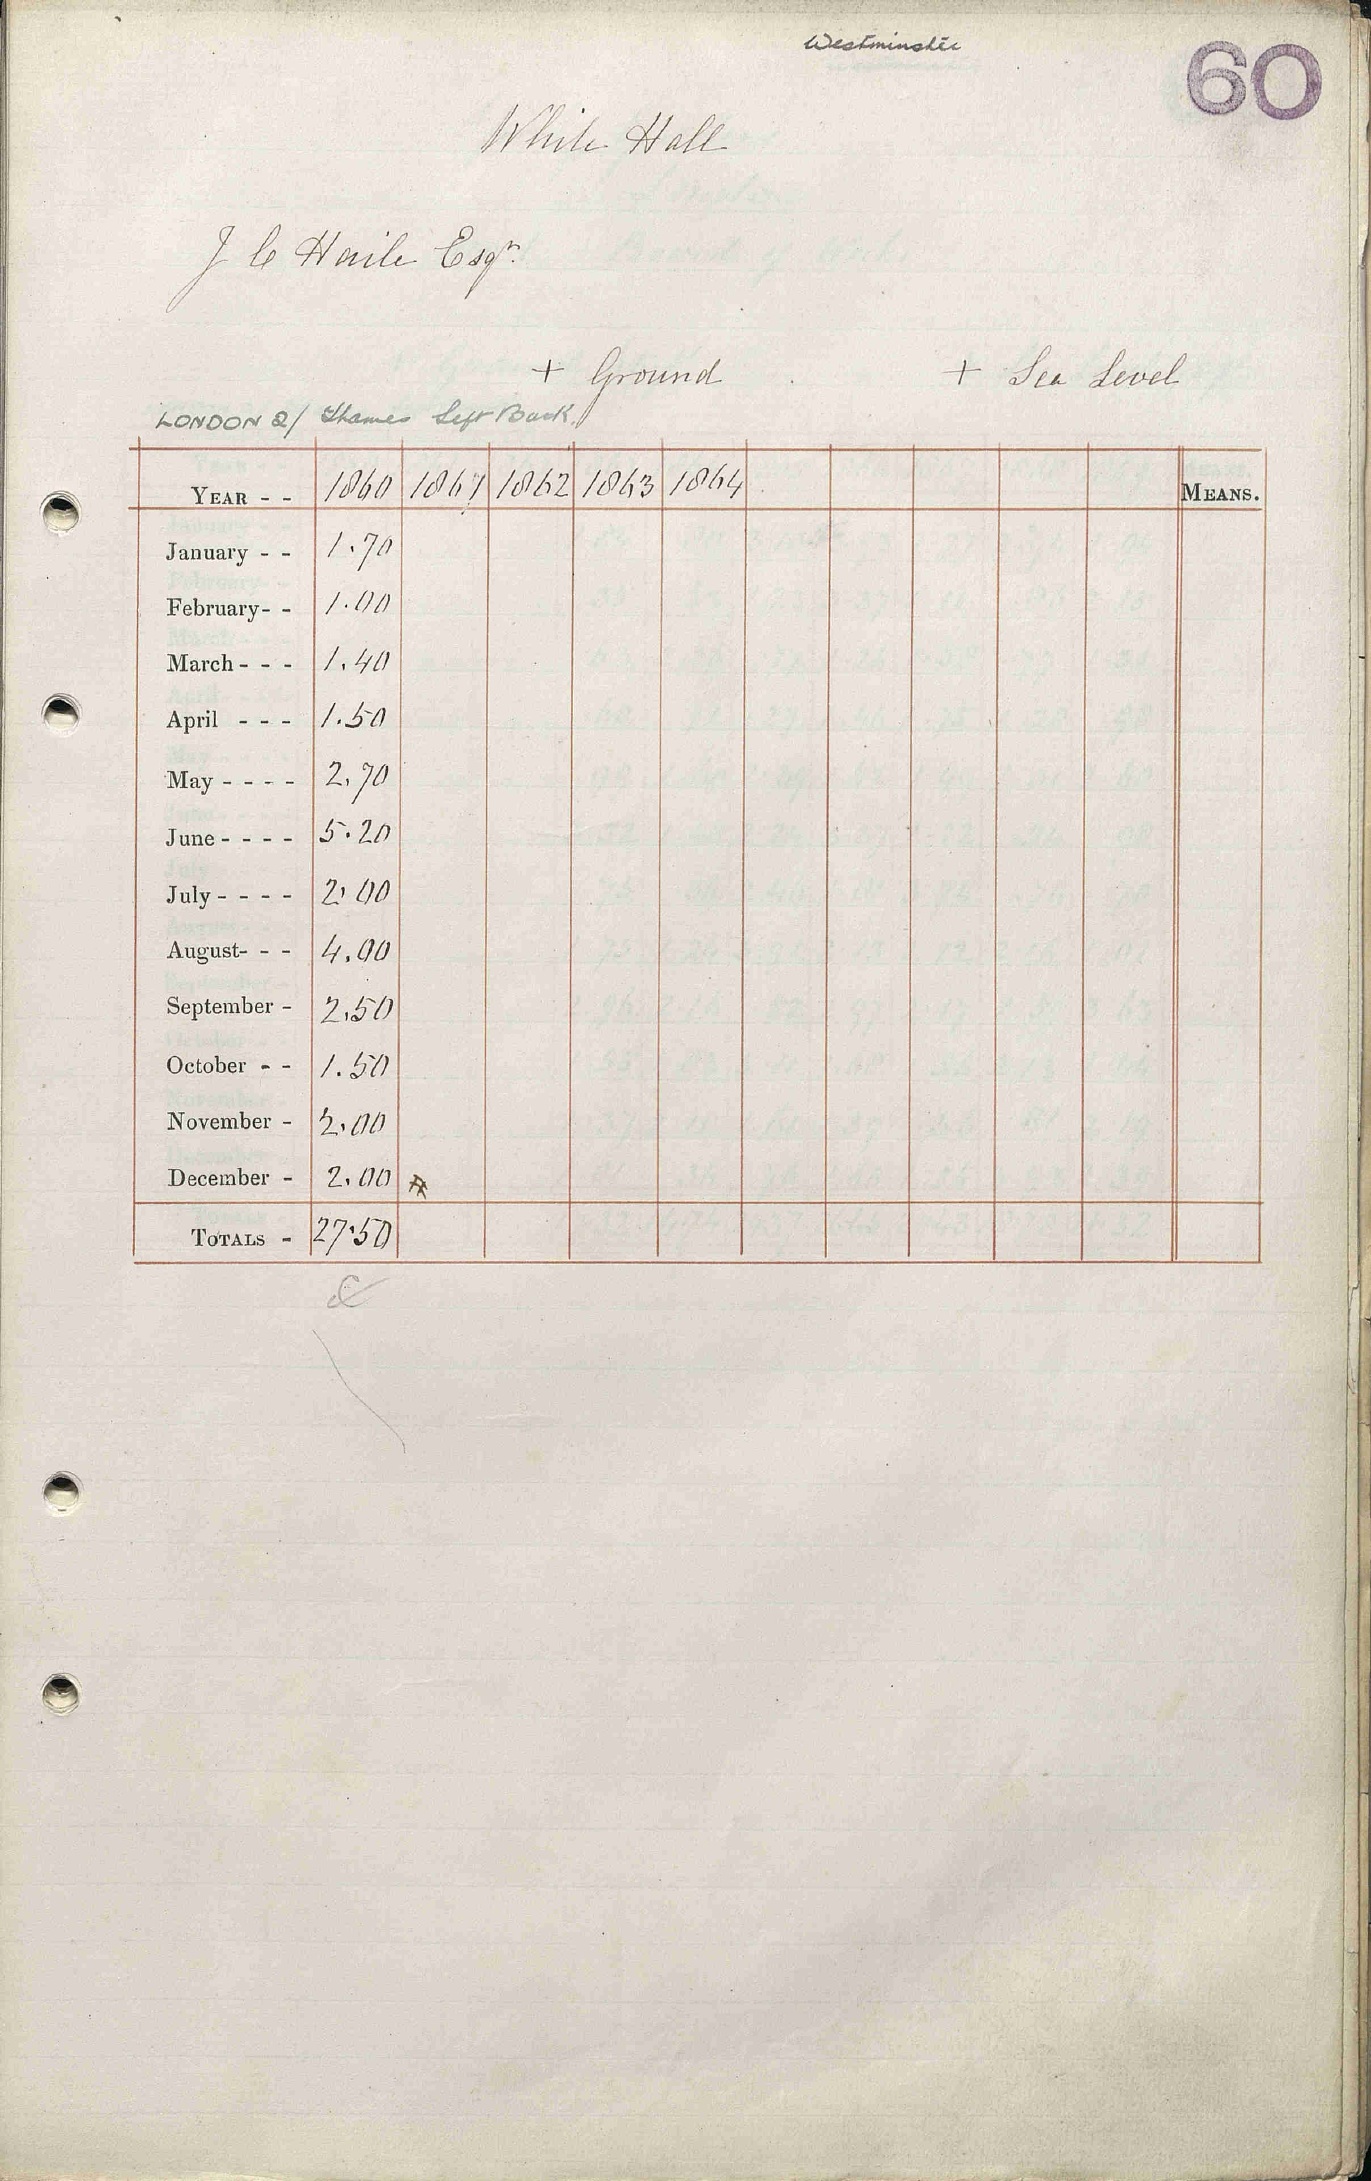 Westminster
60
White Hall
J C Haile Esqr.
+ Ground + Sea Level
LONDON 2/ Thames Left Bank.
YEAR - - 1860 1861 1862 1863 1864 MEANS.
January - - 1.70
February - - 1.00
March - - - 1.40
April - - - 1.50
May - - - - 2.70
June - - - - 5.20
July - - - - 2.00
August - - - 4.00
September - 2.50
October - - 1.50
November - 2.00
December - 2.00
TOTALS - 27.50